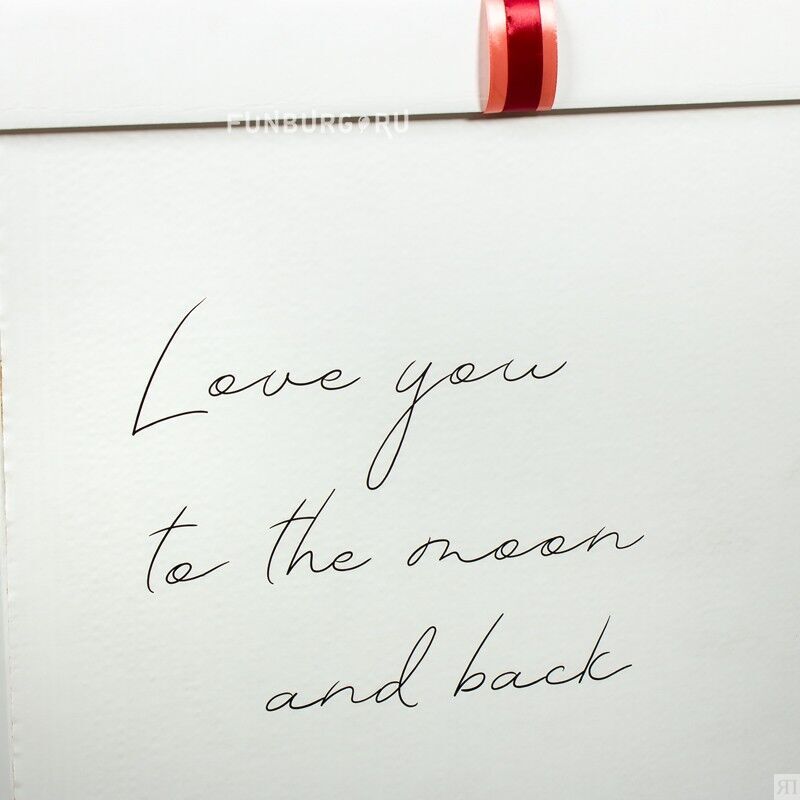 FUNBURG.RU
Love you
to the moon
and back
ЯП